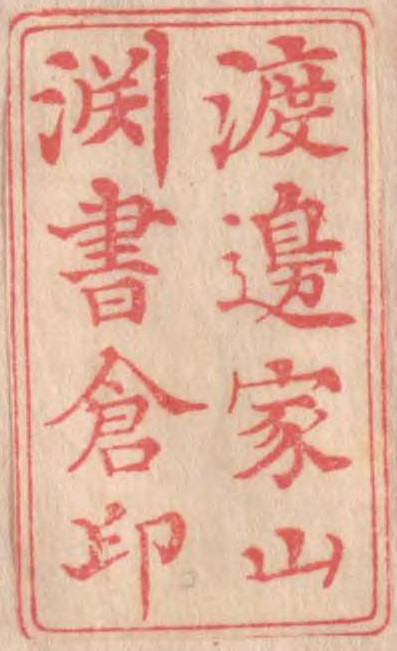 渡邊家山
渕書倉印